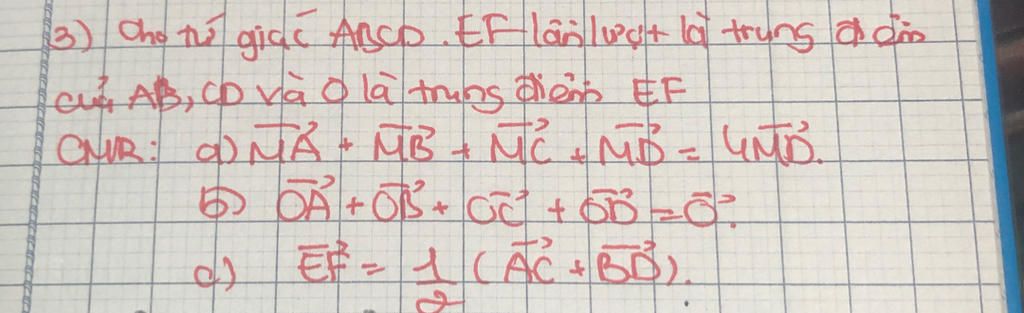 3) Cho tứ giác ABCD. EF lần lượt là trung điểm
của AB, CD và O là trung điểm EF
CMR: a) \overrightarrow{MA} + \overrightarrow{MB} + \overrightarrow{MC} + \overrightarrow{MD} = 4\overrightarrow{MD}.
b) \overrightarrow{OA} + \overrightarrow{OB} + \overrightarrow{OC} + \overrightarrow{OD} = \overrightarrow{O}.
c) \overrightarrow{EF} = \frac{1}{2} (\overrightarrow{AC} + \overrightarrow{BD}).